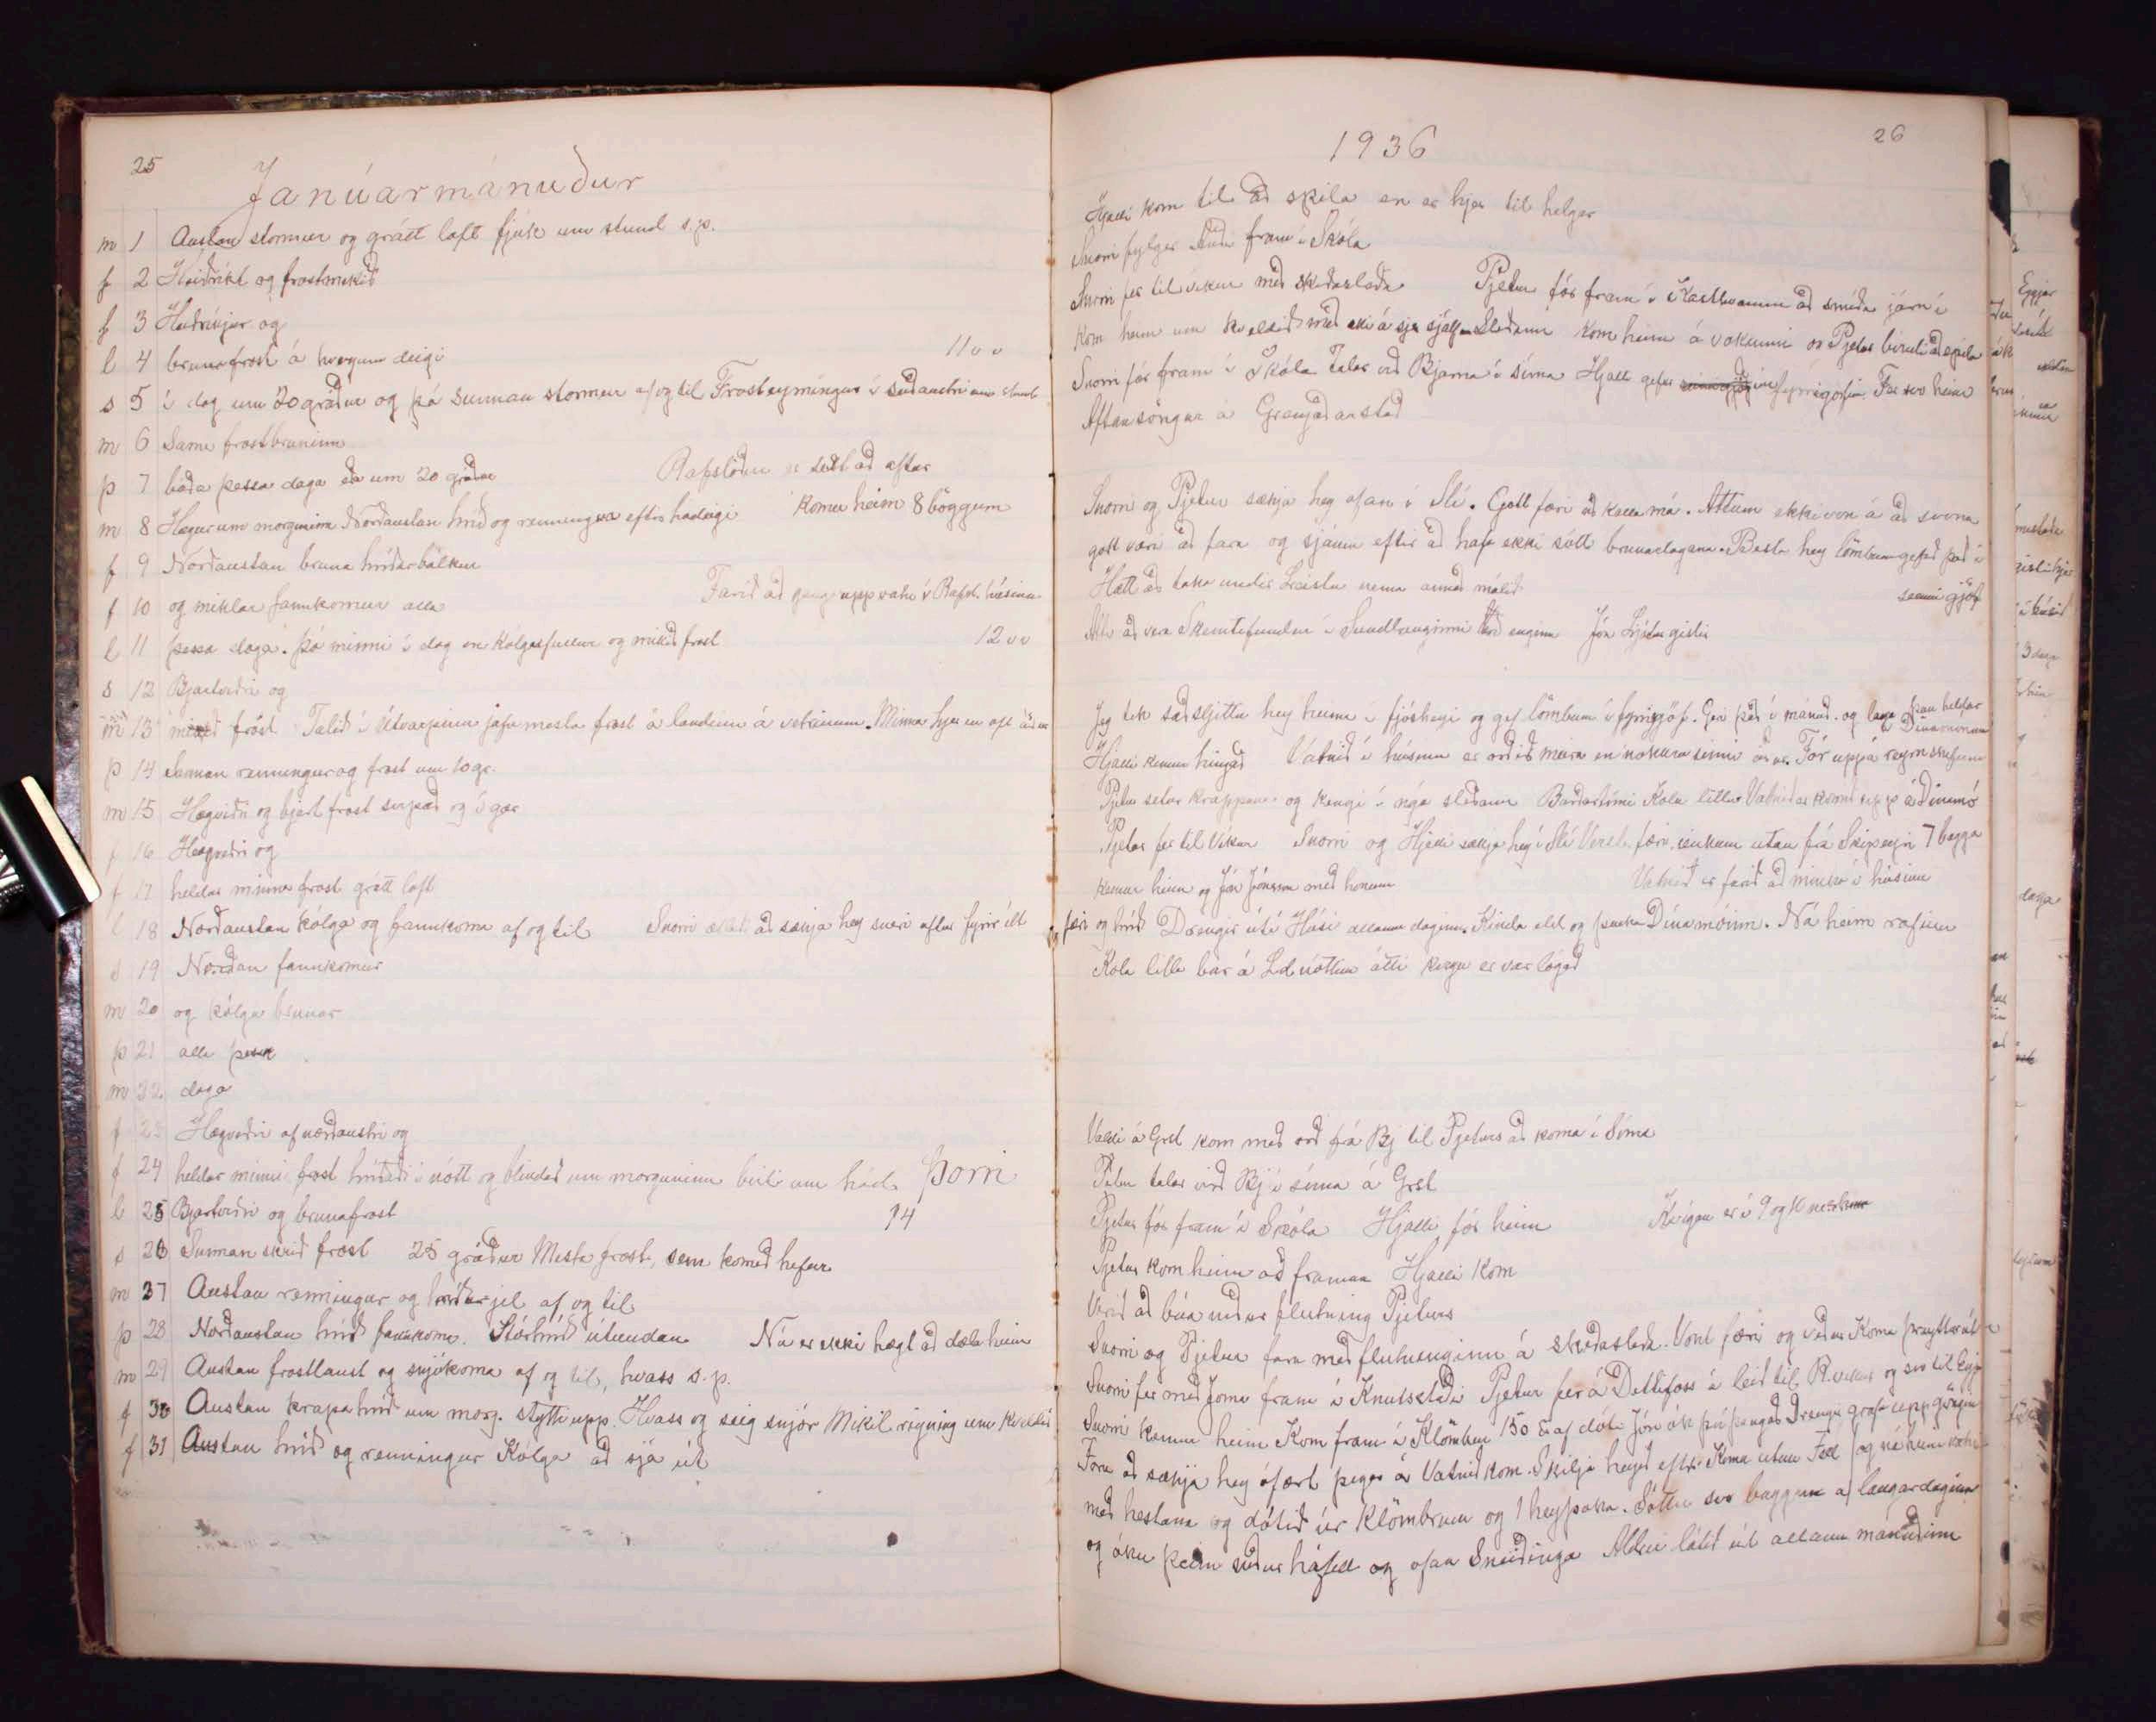 25
Janúarmánuður
m 1 Austan stormur og grátt loft fjúk um stund s.p.
f 2 Heiðríkt og frostmikið
f 3 Heiðríkjur og
l 4 brunafrost á hverjum deigi 11
s 5 í dag um 20 gráður og þá sunnan stormur af og til Frosteymingur í suðaustri um stund
m 6 Sami frostbruninn
þ 7 báða þessa daga um 20 gráður Rafstöðin er sett að aftur
m 8 Hægur um morguninn Norðaustan hríð og renningur eftir hádeigi Komu heim 8 böggum
f 9 Norðaustan bruna hríðarbálkur
f 10 og miklar fannkomur alla Farið að ganga upp vatn í Rafst. húsinu
l 11 þessa daga. þó minni í dag en kólgufullur og mikið frost 12
s 12 Bjartviðri og
m 13 frost Talið í Útvarpinu jafn mesta frost á landinu á vetrinum. Minna hjer en oft áður
þ 14 Sunnan renningur og frost um 10 gr.
m 15 Hægviðri og bjart frost svipað og í gær
f 16 Hægviðri og
f 17 heldur minna frost grátt loft
l 18 Norðaustan kólga og fannkoma af og til Snorri að sækja hey snéri aftur fyrir illt
s 19 Norðan fannkomur
m 20 og kólgu brunar
þ 21 alla þessa
m 22 daga
f 23 Hægviðri af norðaustri og
f 24 heldur minni frost hríðaði í nótt og blindað um morguninn birti um hád. Þorri
l 25 Bjartviðri og brunafrost 14
s 26 Sunnan skrið frost 25 gráður Mesta frost, sem komið hefur
m 27 Austan renningur og hríðarjel af og til
þ 28 Norðaustan hríð fannkoma. Stórhríð útundan Nú er ekki hægt að dæla heim
m 29 Austan frostlaust og snjókoma af og til, hvass s.p.
f 30 Austan krapahríð um morg. stytti upp. Hvass og seig snjór Mikil rigning um kveldið
f 31 Austan hríð og renningur Kólga að sjá út
1936
26
Hjalli kom til að spila en er hjer til helgar
Snorri fylgir fram í Skóla
Snorri fer til víkur með skíðasleða Pjetur fór fram í Kasthvamm að smíða járn í
kom heim um kveldið með ski á sig sjálfan Sleðann kom heim á vökunni og Pjetur að spila
Snorri fór fram í Skóla Talar við Bjarna í síma Hjalli gefur fyrrigöfin. Fer svo heim
Aftansöngur á Grenjaðarstað
Snorri og Pjetur sækja hey ofan í Slí. Gott færi að kalla má. Áttum ekki von á að svona
gott væri að fara og sjáum eftir að hafa ekki sótt brunadagana. Besta hey lömbum gefið það í
Hætt að taka undir Leistu nema annað málið seinni gjöf
Átti að vera Skemtifundur í Sundlauginni enginn Jón gistir
Jeg tek hey heima í fjósheyi og gef lömbum í fyrrigjöf. Geri það í mánuð. og laga þau heldur
Hjalli kemur hingað Vatnið í húsinu er orðið meira en nokkuru sinni áður. Fór uppá Dínamónum
Pjetur setur krappana og kengi í nýja sleðann Kola litlu Vatnið er komið upp á Dínamó
Pjetur fer til Víkur Snorri og Hjalli sækja hey í Slí Vont færi, einkum utan frá Skipeyri 7 bagga
kemur heim og Jón Jónsson með honum Vatnið er farið að minka í húsinu
færi og hríð Drengir úti í Húsi allann daginn. Kinda eld og þurka Dínamóinn. Ná heim rafinu
Kola litla bar á nóttina átti kvígu er var lógað
Valdi á Grst kom með orð frá Bj til Pjeturs að koma í Síma
Pjetur talar við Bj í síma á Grst
Pjetur fór fram í Skóla Hjalli fór heim Kvígan er í 9 og 10
Pjetur kom heim að framan Hjalli kom
Verið að búa undir flutning Pjeturs
Snorri og Pjetur fara með flutninginn á skíðasleða. Vont færi og veður Koma þreyttir
Snorri fer með Jóni fram í Knútsstaði Pjetur fer á Dettifoss á leið til R.víkur og svo til
Snorri kemur heim Kom fram í Klömbur 150 af dóti Jón ók því þangað Drengir grafa upp
Fóru að sækja hey ófært þegar á Vatnið kom. Skilja heyið eftir. Koma utan Fell og ná heim
með hestana og dótið úr Klömbrum og 1 heypoka. Sóttu svo baggana á laugardaginn
og óku þeim suður háfell og ofan Sneiðinga Aldrei látið út allann mánuðinn